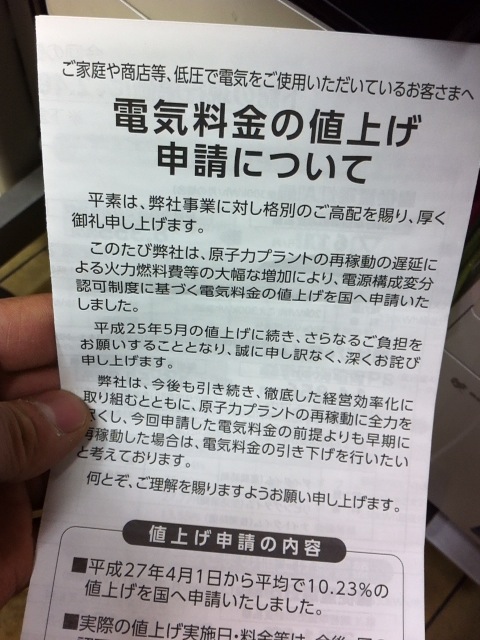 ご家庭や商店等、低圧で電気をご使用いただいているお客さまへ
電気料金の値上げ
申請について
平素は、弊社事業に対し格別のご高配を賜り、厚く
御礼申し上げます。
このたび弊社は、原子力プラントの再稼動の遅延に
よる火力燃料費等の大幅な増加により、電源構成変分
認可制度に基づく電気料金の値上げを国へ申請いた
しました。
平成25年5月の値上げに続き、さらなるご負担を
お願いすることとなり、誠に申し訳なく、深くお詫び
申し上げます。
弊社は、今後も引き続き、徹底した経営効率化に
取り組むとともに、原子力プラントの再稼動に全力を
尽くし、今回申請した電気料金の前提よりも早期に
再稼動した場合は、電気料金の引き下げを行いたい
と考えております。
何とぞ、ご理解を賜りますようお願い申し上げます。
値上げ申請の内容
■平成27年4月1日から平均で10.23%の
値上げを国へ申請いたしました。
■実際の値上げ実施日・料金等は、今後、国の